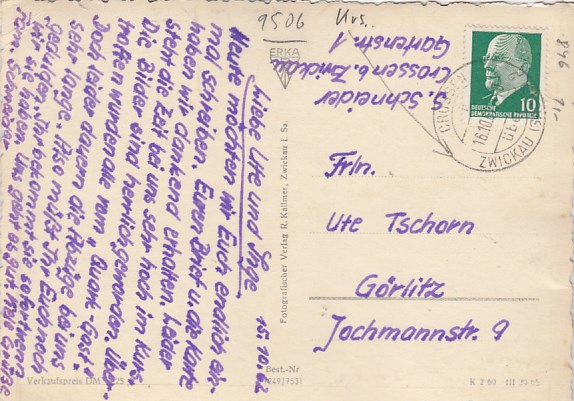 9506
Urs.
846
71-
G. Schneider
Crossen b. Zwickau
Gartenstr. 1
ERKA
10
DEUTSCHE
DEMOKRATISCHE REPUBLIK
CROSSEN
16.10.
ZWICKAU (S)
15.10.62
Liebe Ute und Inge
Heute möchten wir Euch endlich ein-
mal schreiben. Euren Brief u. die Karte
haben wir dankend erhalten. Leider
steht die Zeit bei uns sehr hoch im Kurs.
Die Bilder sind herrlich geworden. Über-
troffen wurden alle vom
Doch leider dauern die Abzüge bei uns
sehr lange. Also müßt Ihr Euch noch
gedulden. Ihr bekommt sie sofort wenn
wir sie haben. Uns geht es gut. Viele Grüße
Frln.
Ute Tschorn
Görlitz
Jochmannstr. 9
Fotografischer Verlag R. Kallmer, Zwickau i. Sa.
Verkaufspreis DM 0,25
Best.-Nr
K 2 60 III 29 65